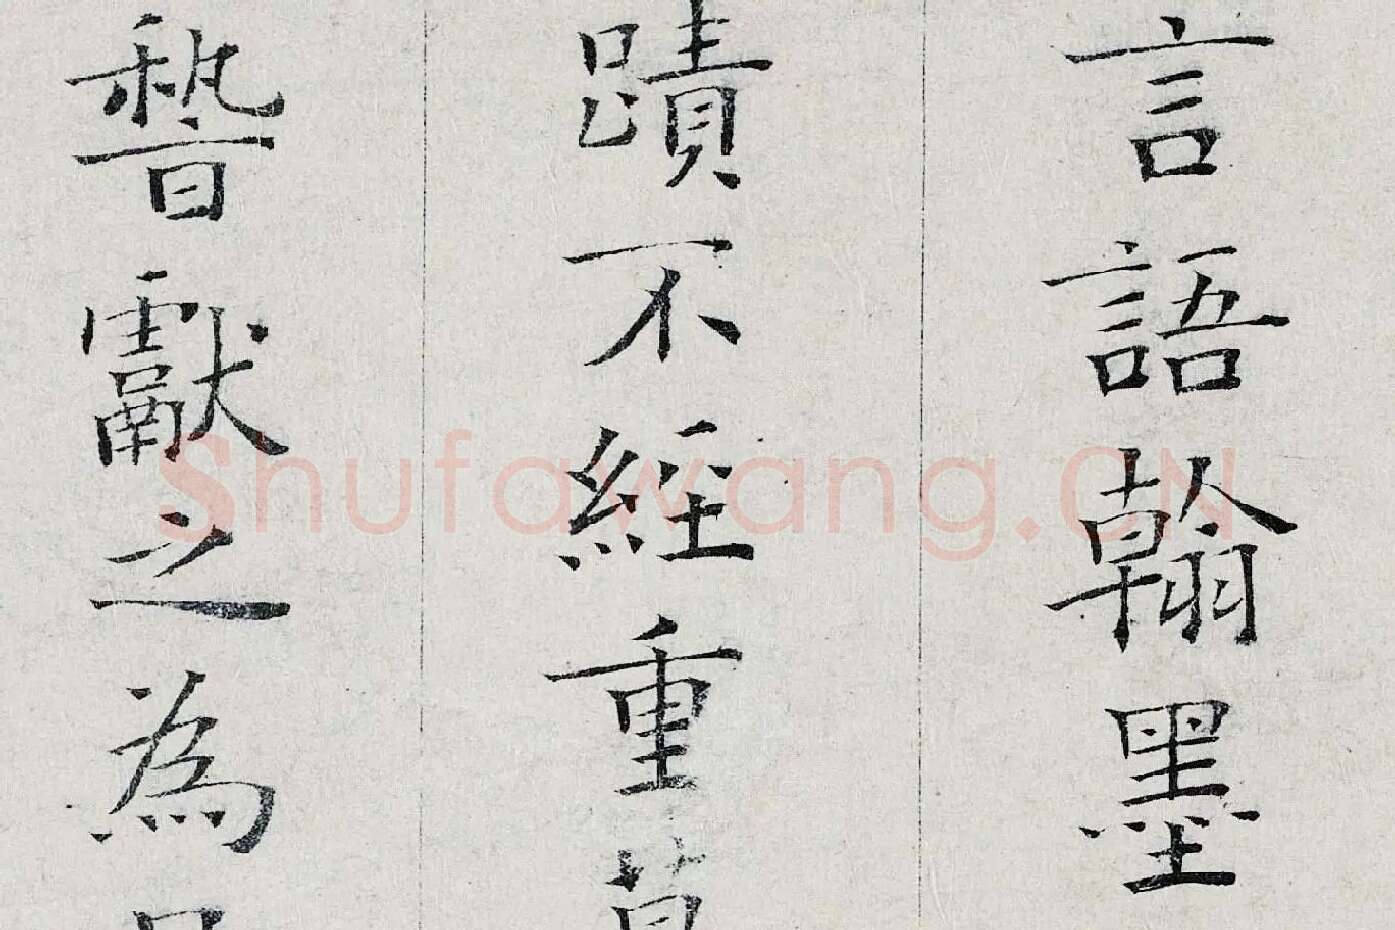 言語翰墨
蹟不經重
獻之為
Shufawang.CN